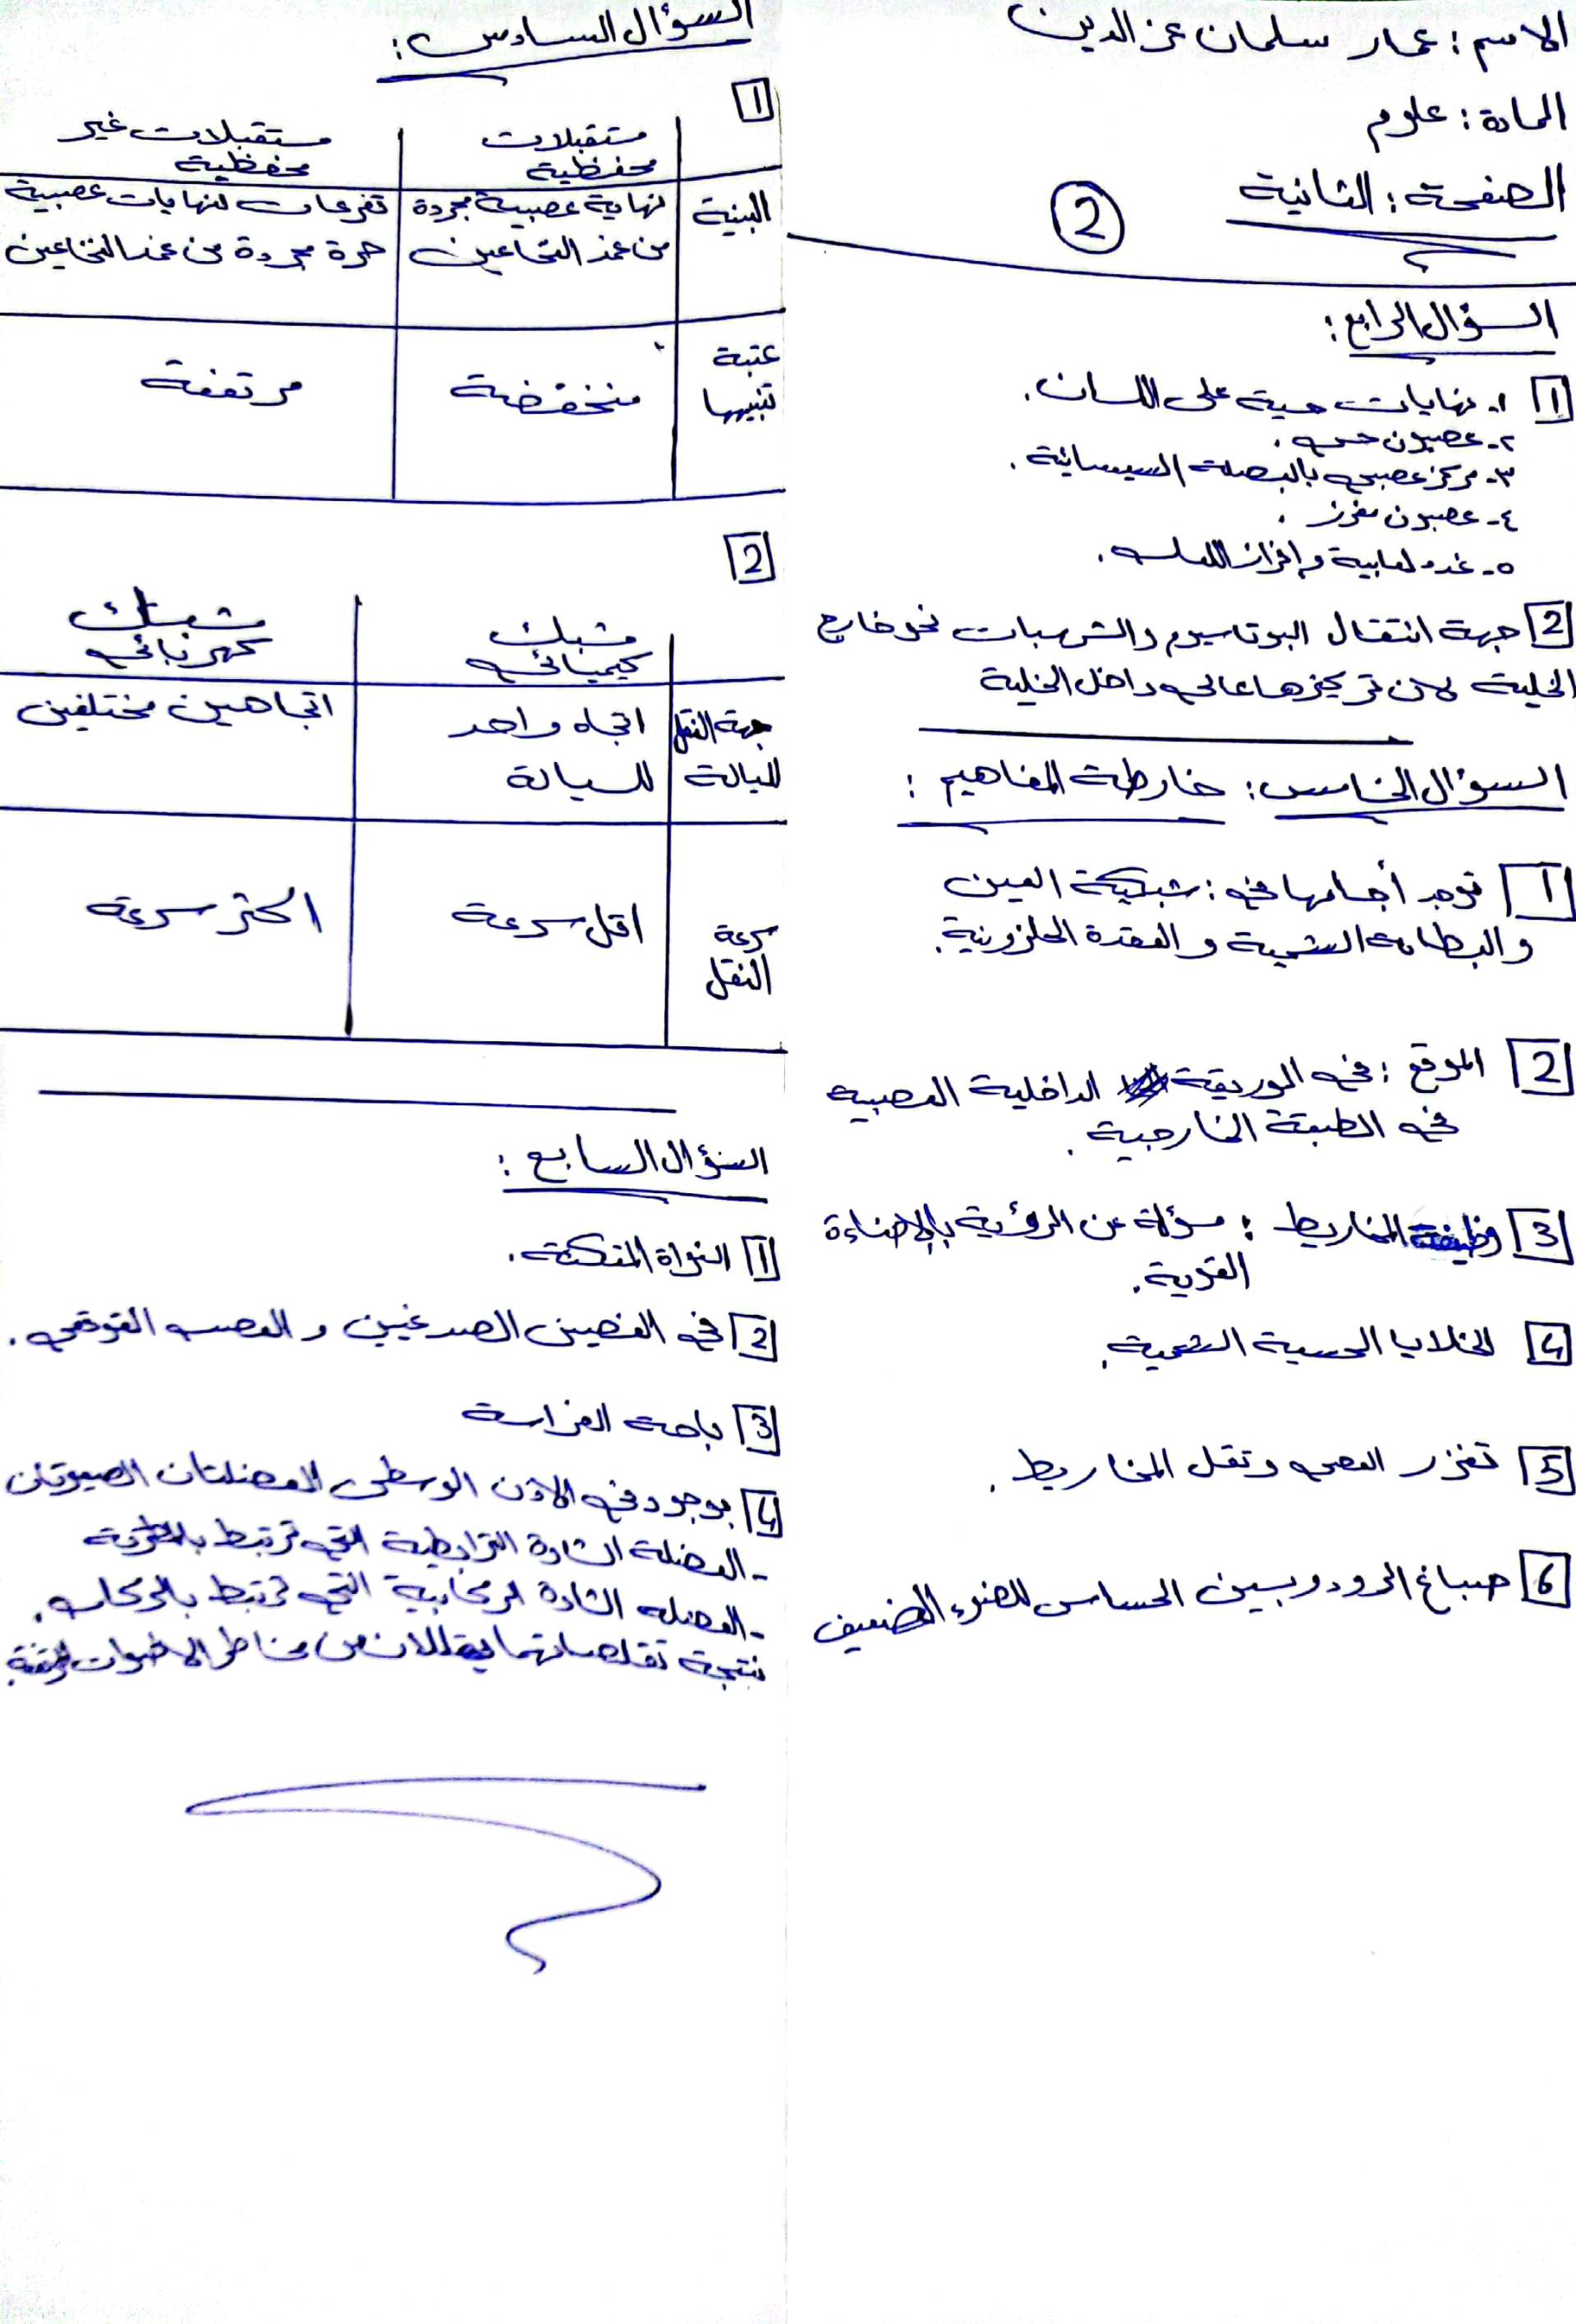 الاسم : عمار سلمان عز الدين
المادة : علوم
الصفحة : الثانية
2
السؤال الرابع :
1 ١- نهايات حسية على اللسان .
٢- عصبون حسي .
٣- مركز عصبي بالبصلة السيسائية .
٤- عصبون مفرز .
٥- غدد لعابية وإفراز اللعاب .
2 جهة انتقال البوتاسيوم والشرسبات نحو خارج
الخلية لان تركيزها عالي داخل الخلية
السؤال الخامس : خارطة المفاهيم :
1 توجد أجسامها في : شبكية العين
والبطاحة الشمية و العقدة الحلزونية .
2 الموقع : في الوريقة الداخلية العصبية
في الطبقة الخارجية .
3 وظيفة المخاريط : مسؤلة عن الرؤية بالإضاءة
القوية .
4 الخلايا الحسية الشمية .
5 تغزر العصي وتقل المخاريط .
6 صباغ الرودوبسين الحساس للضوء الضعيف
السؤال السادس :
1
مستقبلات محفظية | مستقبلات غير محفظية
البنية | نهاية عصبية مجردة | تفرعات لنهايات عصبية
من غمد النخاعين | حرة مجردة من غمد النخاعين
عتبة تنبيهها | منخفضة | مرتفعة
2
مشبك كيميائي | مشبك كهربائي
جهة النقل | اتجاه واحد | اتجاهين مختلفين
للسيالة | للسيالة
سرعة النقل | اقل سرعة | اكثر سرعة
السؤال السابع :
1 النواة المتكئة .
2 في الفصين الصدغيين و العصب القوقعي .
3 باحة الفراسة
4 بوجود في الاذن الوسطى العضلتان الصيوتان
- العضلة الشادة الترابطية التي ترتبط بالمطرقة
- العضلة الشادة الركابية التي ترتبط بالركاب .
نتيجة تقلصاتهما يقللان من مخاطر الاصوات